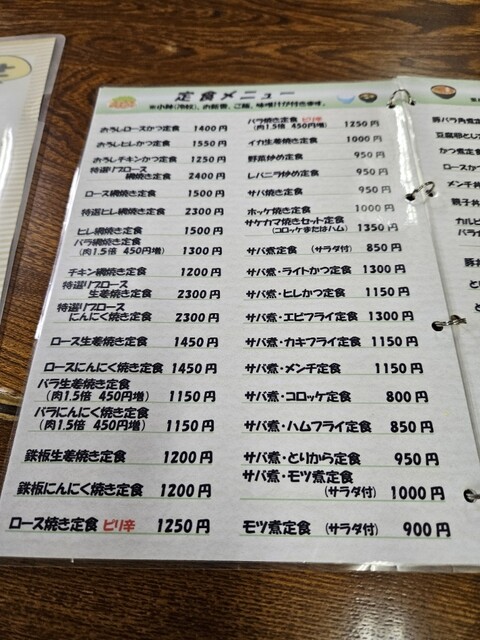 定食メニュー
※小鉢(冷奴)、お新香、ご飯、味噌汁が付きます。
おろしロースかつ定食 1400円
おろしヒレかつ定食 1550円
おろしチキンかつ定食 1250円
特選リブロース
網焼き定食 2400円
ロース網焼き定食 1500円
特選ヒレ網焼き定食 2300円
ヒレ網焼き定食 1500円
バラ網焼き定食
(肉1.5倍 450円増) 1300円
チキン網焼き定食 1200円
特選リブロース
生姜焼き定食 2300円
特選リブロース
にんにく焼き定食 2300円
ロース生姜焼き定食 1450円
ロースにんにく焼き定食 1450円
バラ生姜焼き定食
(肉1.5倍 450円増) 1150円
バラにんにく焼き定食
(肉1.5倍 450円増) 1150円
鉄板生姜焼き定食 1200円
鉄板にんにく焼き定食 1200円
ロース焼き定食 ピリ辛 1250円
バラ焼き定食 ピリ辛
(肉1.5倍 450円増) 1250円
イカ生姜焼き定食 1000円
野菜炒め定食 950円
レバニラ炒め定食 950円
サバ焼き定食 950円
ホッケ焼き定食 1000円
サケカマ焼きセット定食
(コロッケまたはハム) 1350円
サバ煮定食 (サラダ付) 850円
サバ煮・ライトかつ定食 1300円
サバ煮・ヒレかつ定食 1150円
サバ煮・エビフライ定食 1300円
サバ煮・カキフライ定食 1150円
サバ煮・メンチ定食 1150円
サバ煮・コロッケ定食 800円
サバ煮・ハムフライ定食 850円
サバ煮・とりから定食 950円
サバ煮・モツ煮定食
(サラダ付) 1000円
モツ煮定食 (サラダ付) 900円
豚バラ角煮定
かつ煮定食
ロースかつ
メンチ丼
親子丼
カルビ
バラ
豚丼